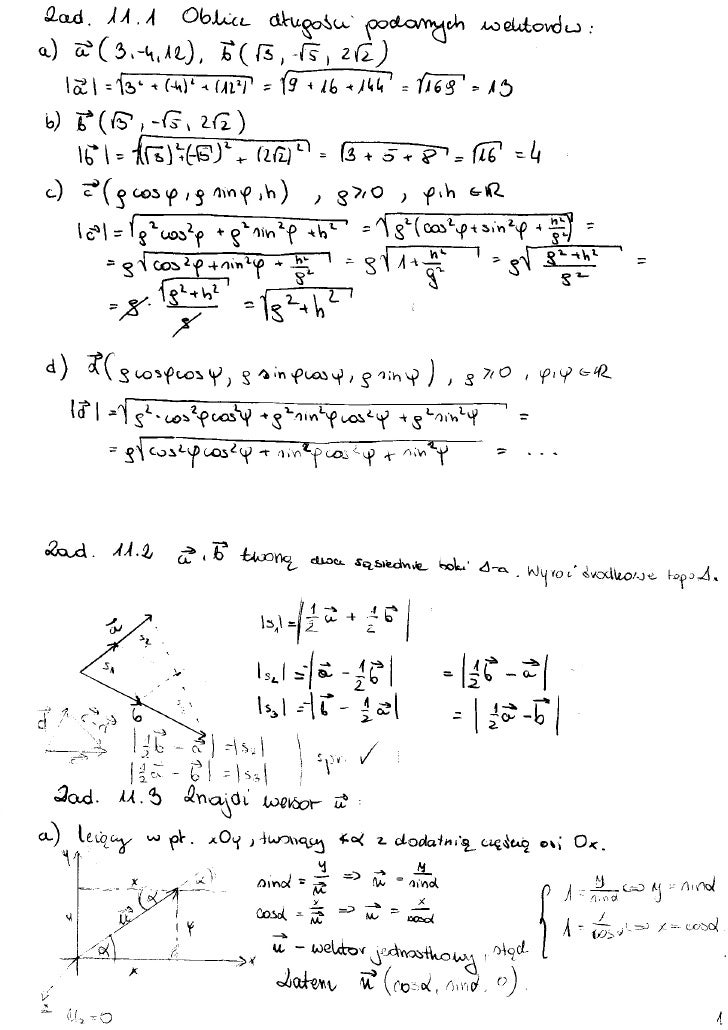 Zad. 11.1 Oblicz długości podanych wektorów:
a) a⃗ (3,-4,12), b⃗ (√3, -√5, 2√2)
|a⃗| = √(3² + (-4)² + (12²)) = √(9 + 16 + 144) = √169 = 13
b) b⃗ (√3, -√5, 2√2)
|b⃗| = √((√3)² + (-√5)² + (2√2)²) = √(3 + 5 + 8) = √16 = 4
c) c⃗ (ρ cosφ, ρ sinφ, h), ρ ≥ 0, φ, h ∈ ℝ
|c⃗| = √(ρ²cos²φ + ρ²sin²φ + h²) = √(ρ²(cos²φ + sin²φ + h²/ρ²)) =
= ρ√(cos²φ + sin²φ + h²/ρ²) = ρ√(1 + h²/ρ²) = ρ√((ρ² + h²)/ρ²) =
= ρ · √(ρ² + h²)/ρ = √(ρ² + h²)
d) d⃗ (ρ cosφ cosψ, ρ sinφ cosψ, ρ sinψ), ρ ≥ 0, φ, ψ ∈ ℝ
|d⃗| = √(ρ² · cos²φ cos²ψ + ρ² sin²φ cos²ψ + ρ² sin²ψ) =
= ρ√(cos²φ cos²ψ + sin²φ cos²ψ + sin²ψ) = ...
Zad. 11.2 a⃗, b⃗ tworzą dwa sąsiednie boki Δ-a. Wyraź środkowe tego Δ.
a⃗ s₂ s₁ b⃗
|s₁| = |½a⃗ + ½b⃗|
|s₂| = |a⃗ - ½b⃗| = |½b⃗ - a⃗|
|s₃| = |b⃗ - ½a⃗| = |½a⃗ - b⃗|
d⃗ c⃗-d⃗ c⃗
|½b⃗ - a⃗| = |s₂|
|½a⃗ - b⃗| = |s₃| spr. ✓
Zad. 11.3 Znajdź wersor u⃗:
a) leżący w pł. xOy, tworzący ∢α z dodatnią częścią osi Ox.
y x α α y u⃗ α y x x z
sinα = y/u⃗ ⇒ u⃗ = y/sinα
cosα = x/u⃗ ⇒ u⃗ = x/cosα
u⃗ - wektor jednostkowy, stąd
{ 1 = y/sinα ⇔ y = sinα
1 = x/cosα ⇔ x = cosα
Zatem u⃗ (cosα, sinα, 0).
u₂ = 0
1